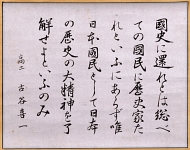 國史に還れとは總べ
ての國民に歴史家た
れといふにあらず唯
日本國民として日本
の歴史の大精神を了
解せよといふのみ
高二 古谷善一